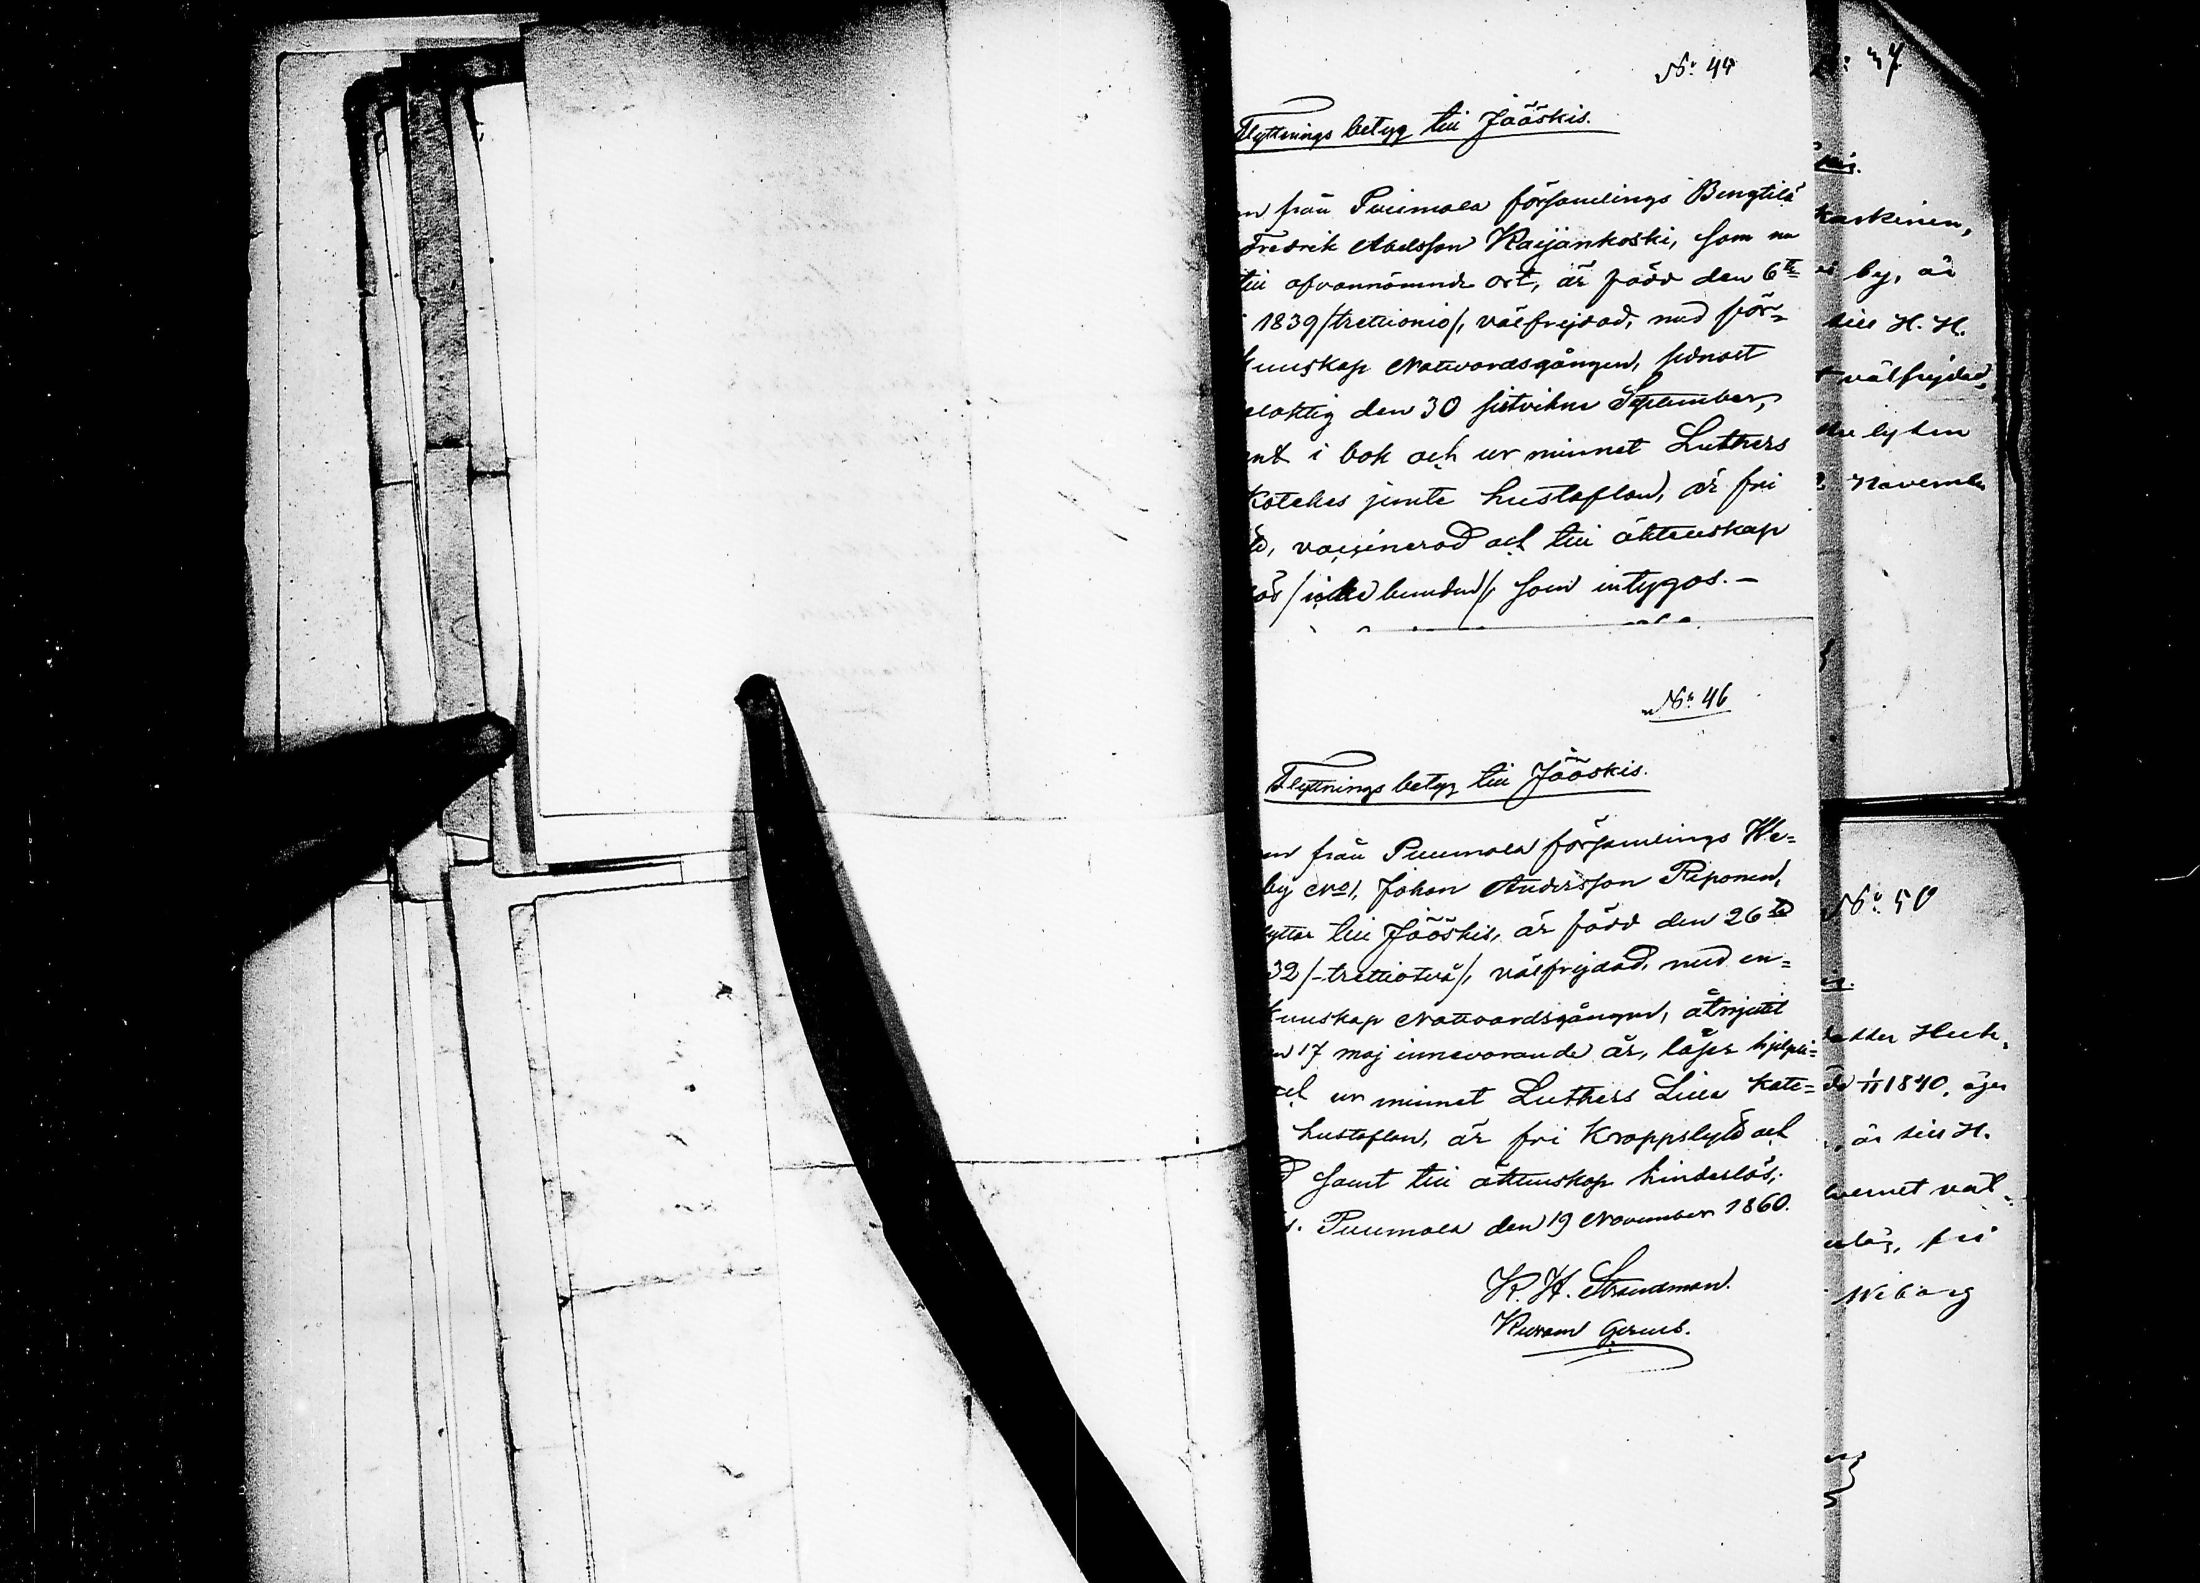 No: 44
Flyttnings betyg till Jääskis.
n från Puumala församlings Bengtilä
Fredrik Abelsson Kaijankoski, som nu
till ofvannämnde ort, är född den 6te
1839 /trettionio/, välfrejdad, med för=
kunskap Nattvardsgången, sednast
elaktig den 30 sistvikne September,
ent i bok och ur minnet Luthers
Kateches jemte hustaflan, är fri
vaccinerad och till äktenskap
lös /icke bunden/, som intygas. —
No: 46
Flyttnings betyg till Jääskis.
en från Puumala församlings We=
by No 1, Johan Andersson Reponen,
lyttar till Jääskis, är född den 26te
32 /-trettiotvå/, välfrejdad, med en=
kunskap Nattvardsgången, åtnjutit
n 17 maj innevarande år, läser hjelpli=
och ur minnet Luthers Lilla Kate=
hustaflan, är fri Kroppslyte och
d samt till äktenskap hinderlös;
s. Puumala den 19 November 1860.
K. H. Strandman.
No: 47
kis.
karkinen,
by, är
till H. H.
t välfrejdad,
November
No: 50
is.
dotter Huk,
1/11 1840, äger
, är till H.
wernet väl=
lös, fri
Wiborg